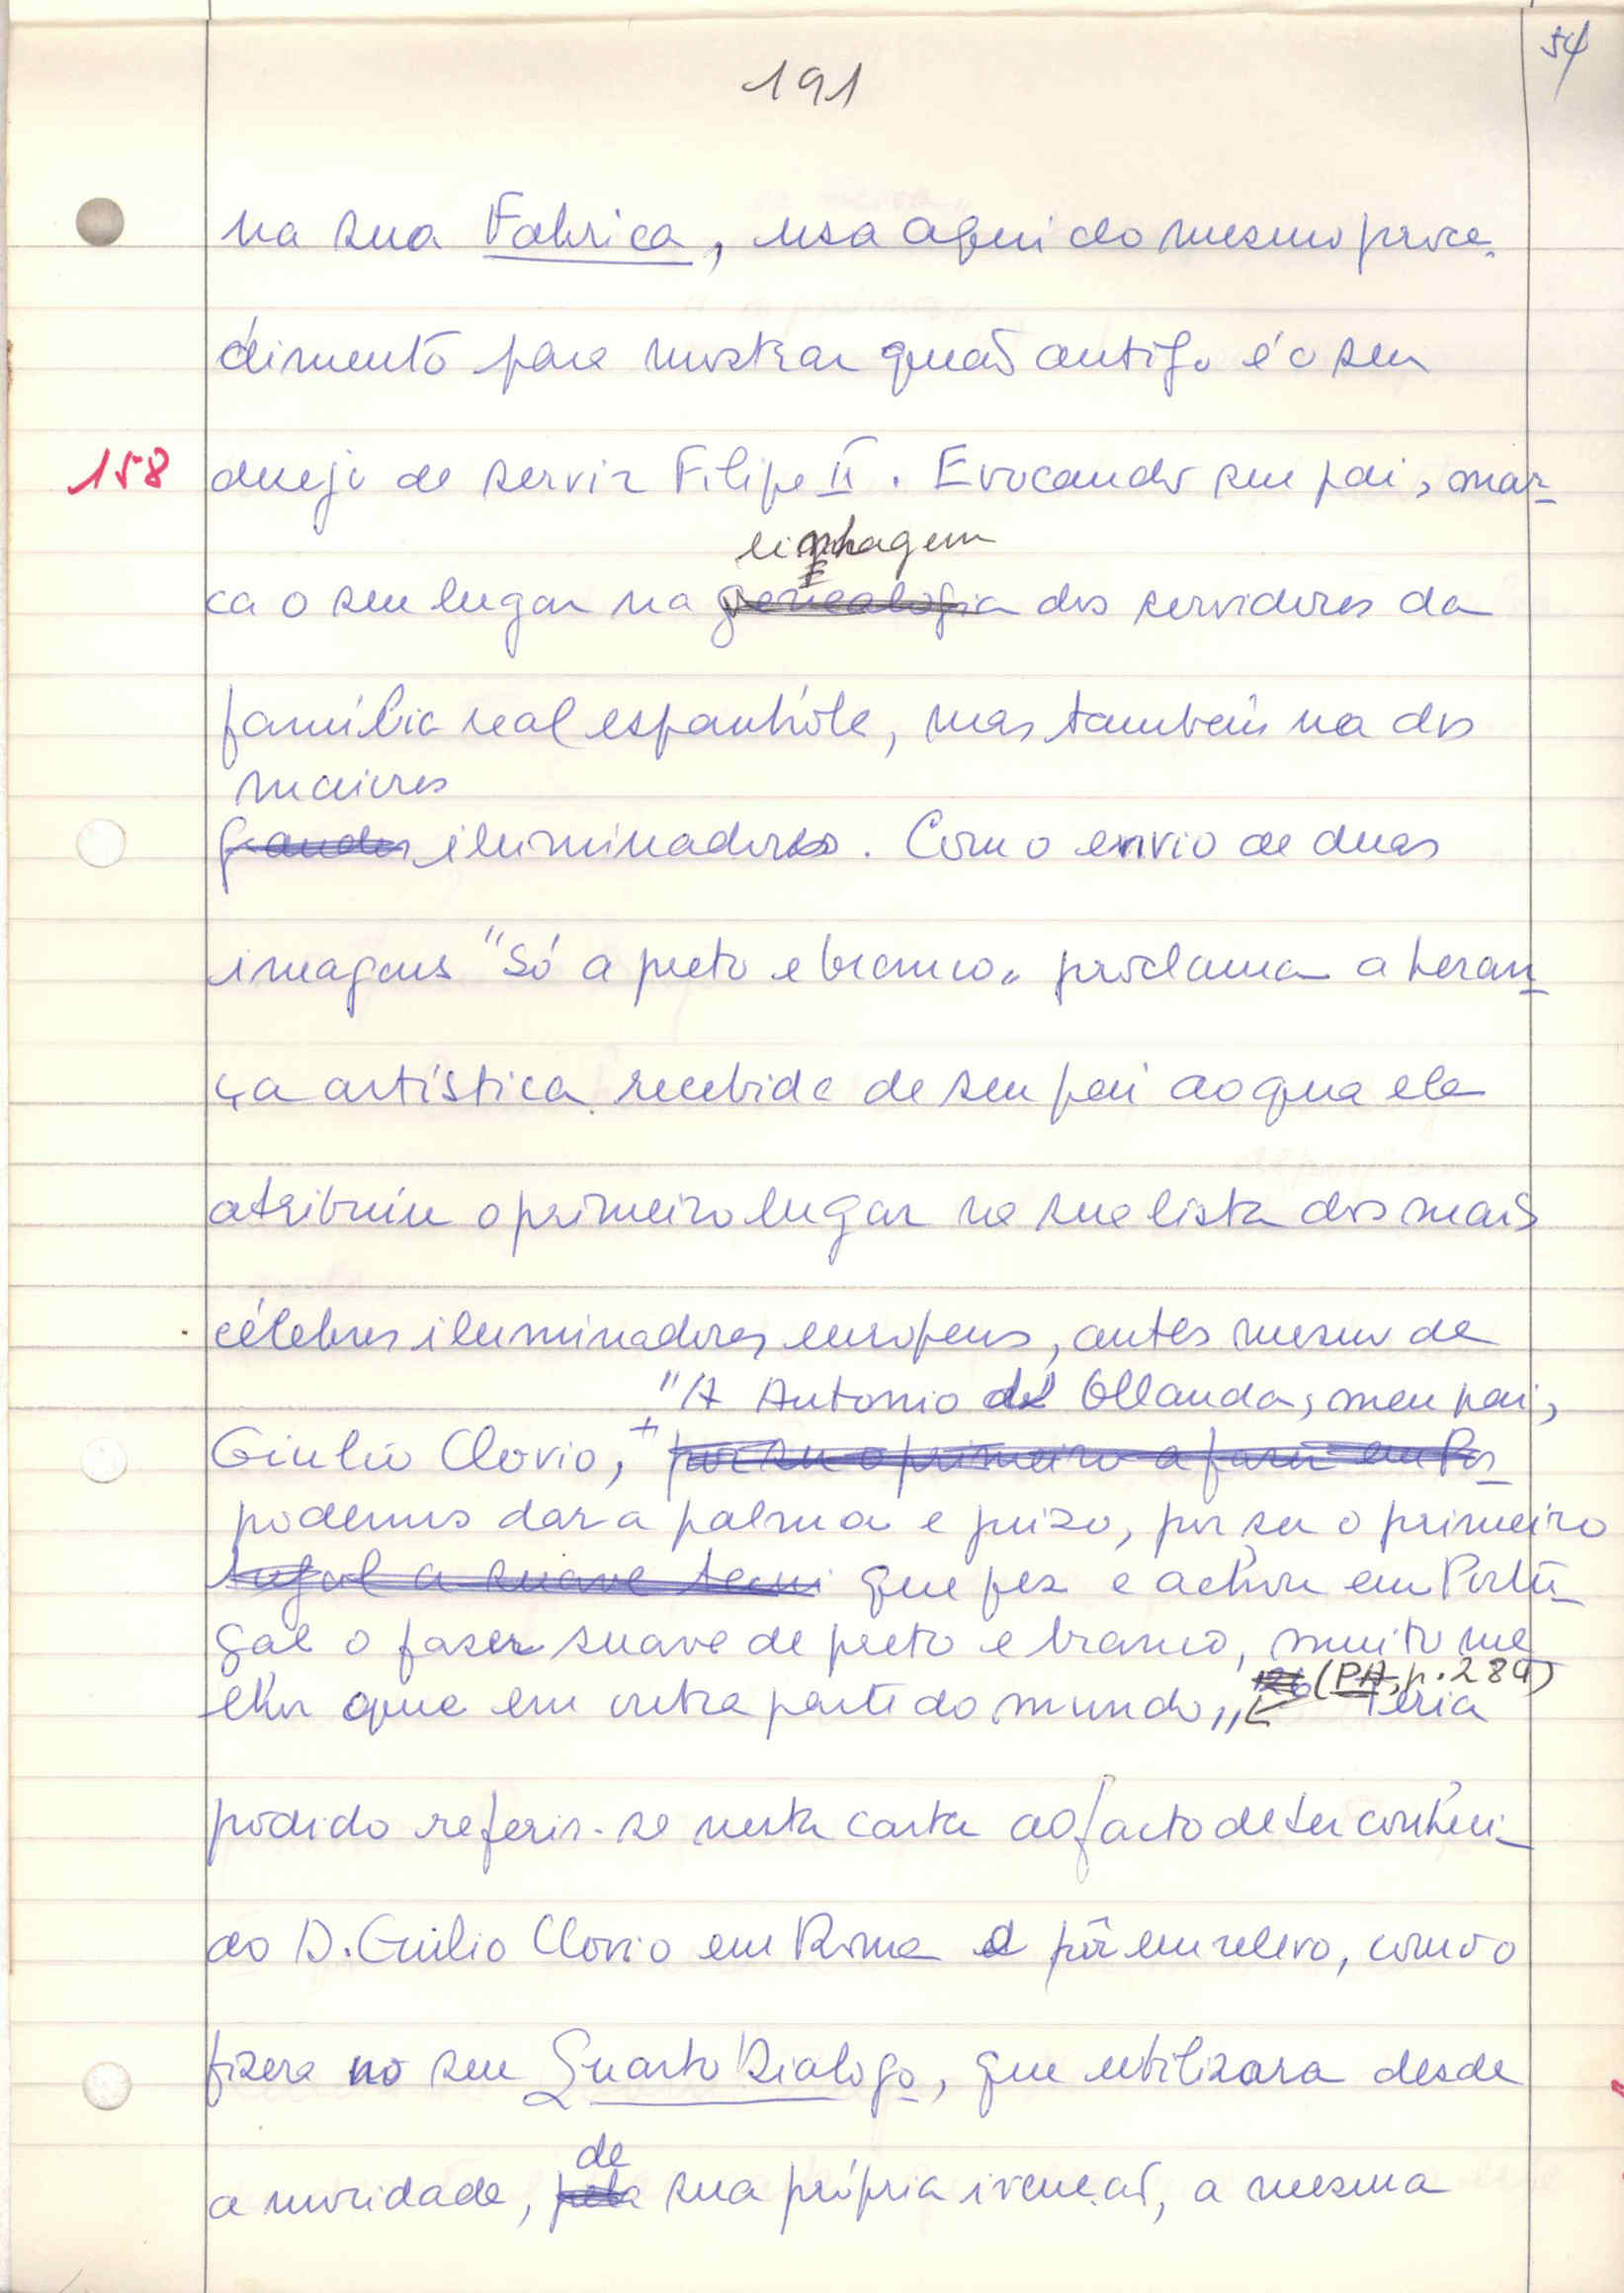 191
54
na sua Fabrica, usa aqui do mesmo proce-
dimento para mostrar quão antigo é o seu
158 desejo de servir Filipe II. Evocando seu pai, mar-
linhagem
ca o seu lugar na genealogia dos servidores da
família real espanhola, mas também na dos
maiores
grandes iluminadores. Com o envio de duas
imagens "só a preto e branco" proclama a heran-
ça artística recebida de seu pai ao qua ele
atribuiu o primeiro lugar na sua lista dos mais
célebres iluminadores europeus, antes mesmo de
"A Antonio d Ollanda, meu pai,
Giulio Clovio, + por ser o primeiro a fazer em Por-
podemos dar a palma e juizo, por ser o primeiro
tugal a suave que fez e achou em Portu-
gal o fazer suave de preto e branco, muito me
lhor que em outra parte do mundo" (PA, p. 289) Teria
podido referir-se nesta carta ao facto de ter conheci-
do D. Giulio Clovio em Roma e pôr em relevo, como o
fizera no seu Quarto Dialogo, que utilizara desde
de
a mocidade, pela sua própria invenção, a mesma